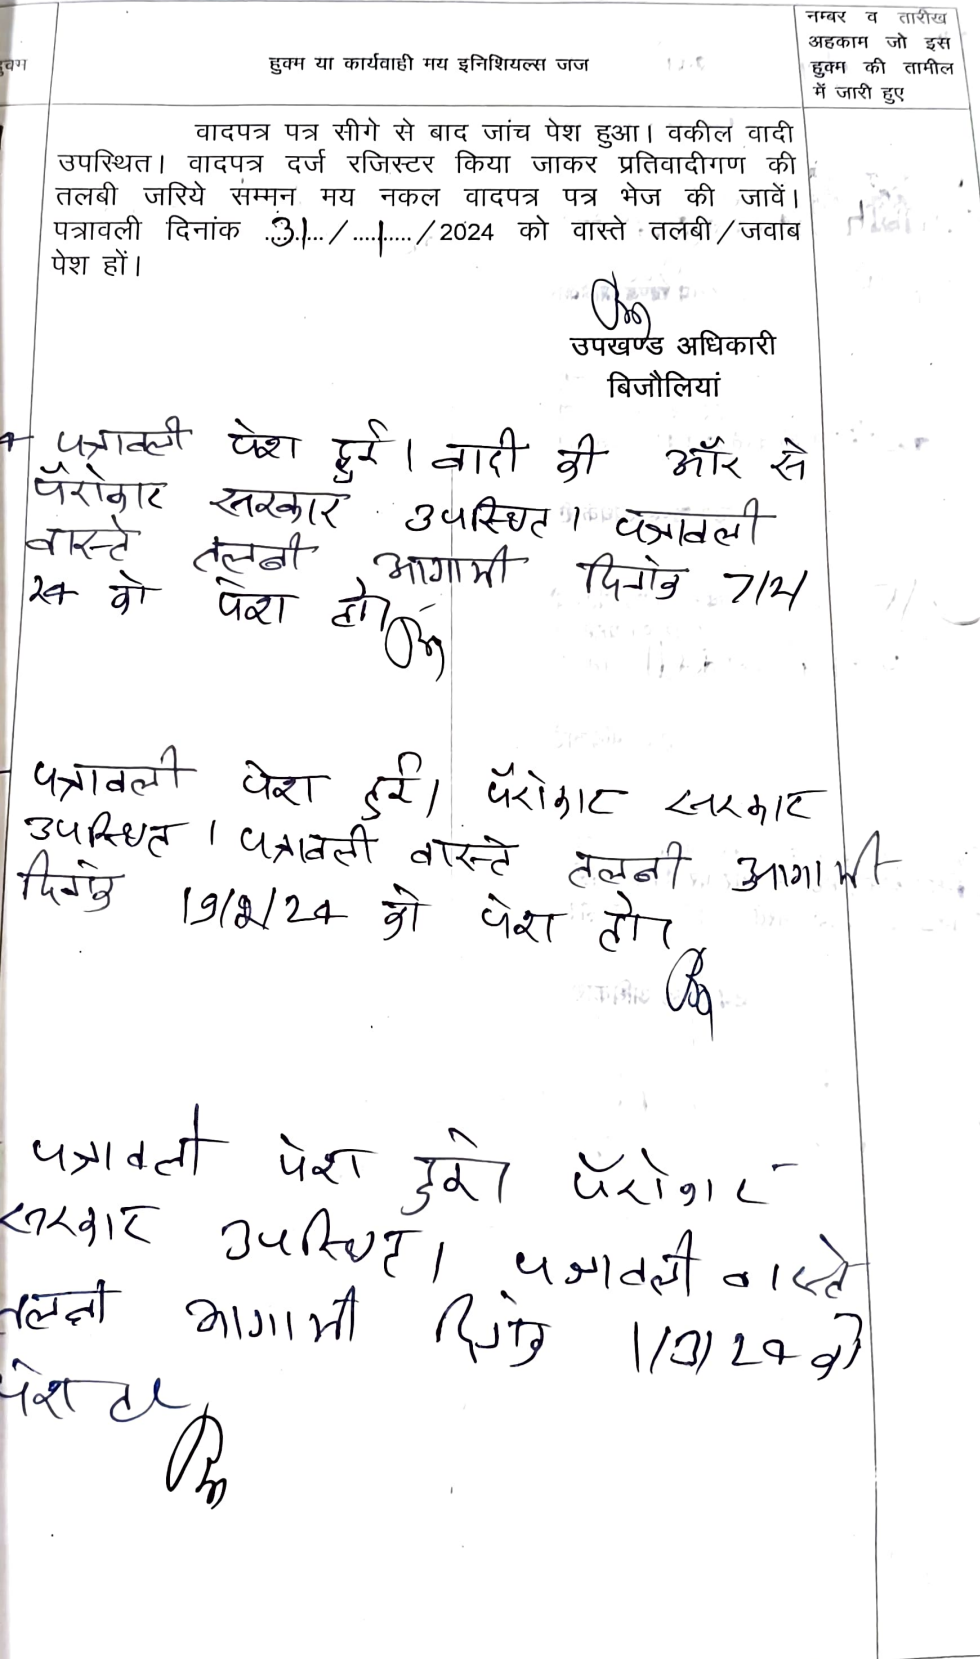 हुक्म या कार्यवाही मय इनिशियल्स जज
नम्बर व तारीख
अहकाम जो इस
हुक्म की तामील
में जारी हुए
वादपत्र पत्र सीगे से बाद जांच पेश हुआ। वकील वादी
उपस्थित। वादपत्र दर्ज रजिस्टर किया जाकर प्रतिवादीगण की
तलबी जरिये सम्मन मय नकल वादपत्र पत्र भेज की जावें।
पत्रावली दिनांक 31/1/2024 को वास्ते तलबी/जवाब
पेश हों।
उपखण्ड अधिकारी
बिजौलियां
पत्रावली पेश हुई। वादी की ओर से
पैरोकार सरकार उपस्थित। पत्रावली
वास्ते तलबी आगामी दिनांक 7/2/
24 को पेश हो।
पत्रावली पेश हुई। पैरोकार सरकार
उपस्थित। पत्रावली वास्ते तलबी आगामी
दिनांक 19/2/24 को पेश हो।
पत्रावली पेश हुई। पैरोकार
सरकार उपस्थित। पत्रावली वास्ते
तलबी आगामी दिनांक 1/3/24 को
पेश हो